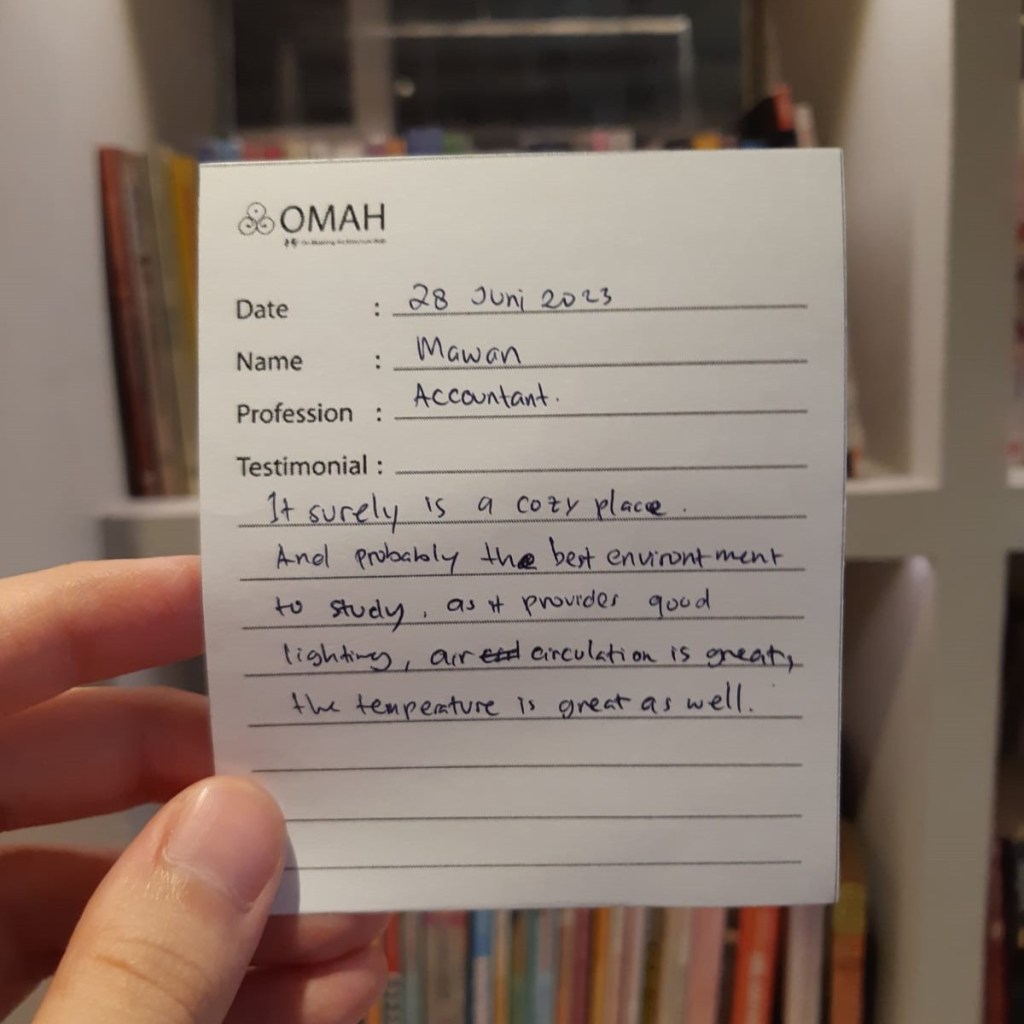 OMAH
Date : 28 Juni 2023
Name : Mawan
Profession : Accountant.
Testimonial :
It surely is a cozy place.
And probably the best environtment
to study, as it provides good
lighting, air circulation is great,
the temperature is great as well.